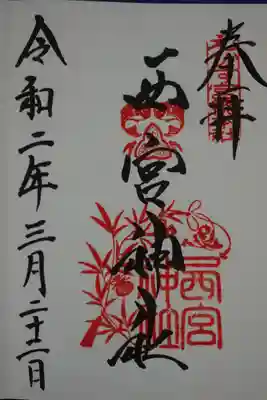 奉拝
西宮神社
令和二年三月二十二日
西宮
神社